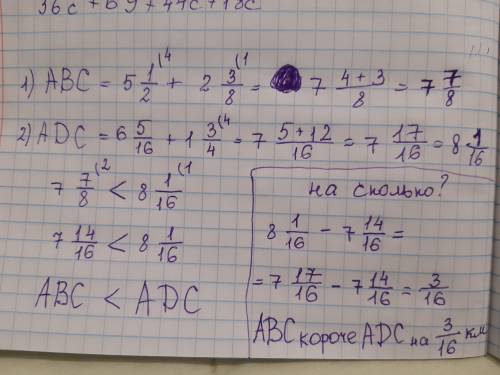 36c + 69 + 44c + 18c
1) ABC = 5 1/2 (4 + 2 3/8 (1 = 7 (4+3)/8 = 7 7/8
2) ADC = 6 5/16 + 1 3/4 (4 = 7 (5+12)/16 = 7 17/16 = 8 1/16
7 7/8 (2 < 8 1/16 (1
7 14/16 < 8 1/16
ABC < ADC
на сколько?
8 1/16 − 7 14/16 =
= 7 17/16 − 7 14/16 = 3/16
ABC короче ADC на 3/16 км